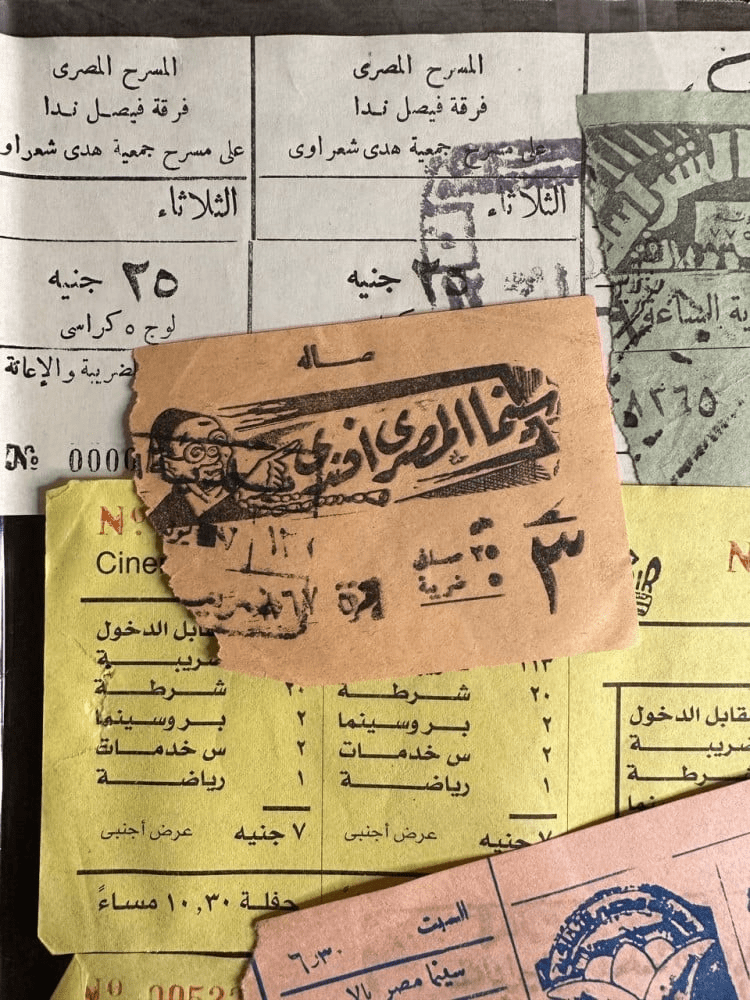 المسرح المصرى
فرقة فيصل ندا
على مسرح جمعية هدى شعراو
الثلاثاء
٢٥ جنيه
لوج ٥ كراسى
ضريبة والإعانة
№ 000
المسرح المصرى
فرقة فيصل ندا
على مسرح جمعية هدى شعراوى
الثلاثاء
٢٥ جنيه
الساعة
٨٢٦٥
صاله
سينما المصرى افندى
٣
٢٥
٥ ضريبة
№
Cine
قابل الدخول
ضريبة
شرطة ٢٠
بروسينما ٢
س خدمات ٢
رياضة ١
٧ جنيه عرض أجنبى
حفلة ١٠,٣٠ مساءً
١١٣
شرطة ٢٠
بروسينما ٢
س خدمات ٢
رياضة ١
٧ جنيه عرض أجنبى
N
قابل الدخول
ضريبة
شرطة
السبت
٦٫٣٠
سينما مصر
№ 00523